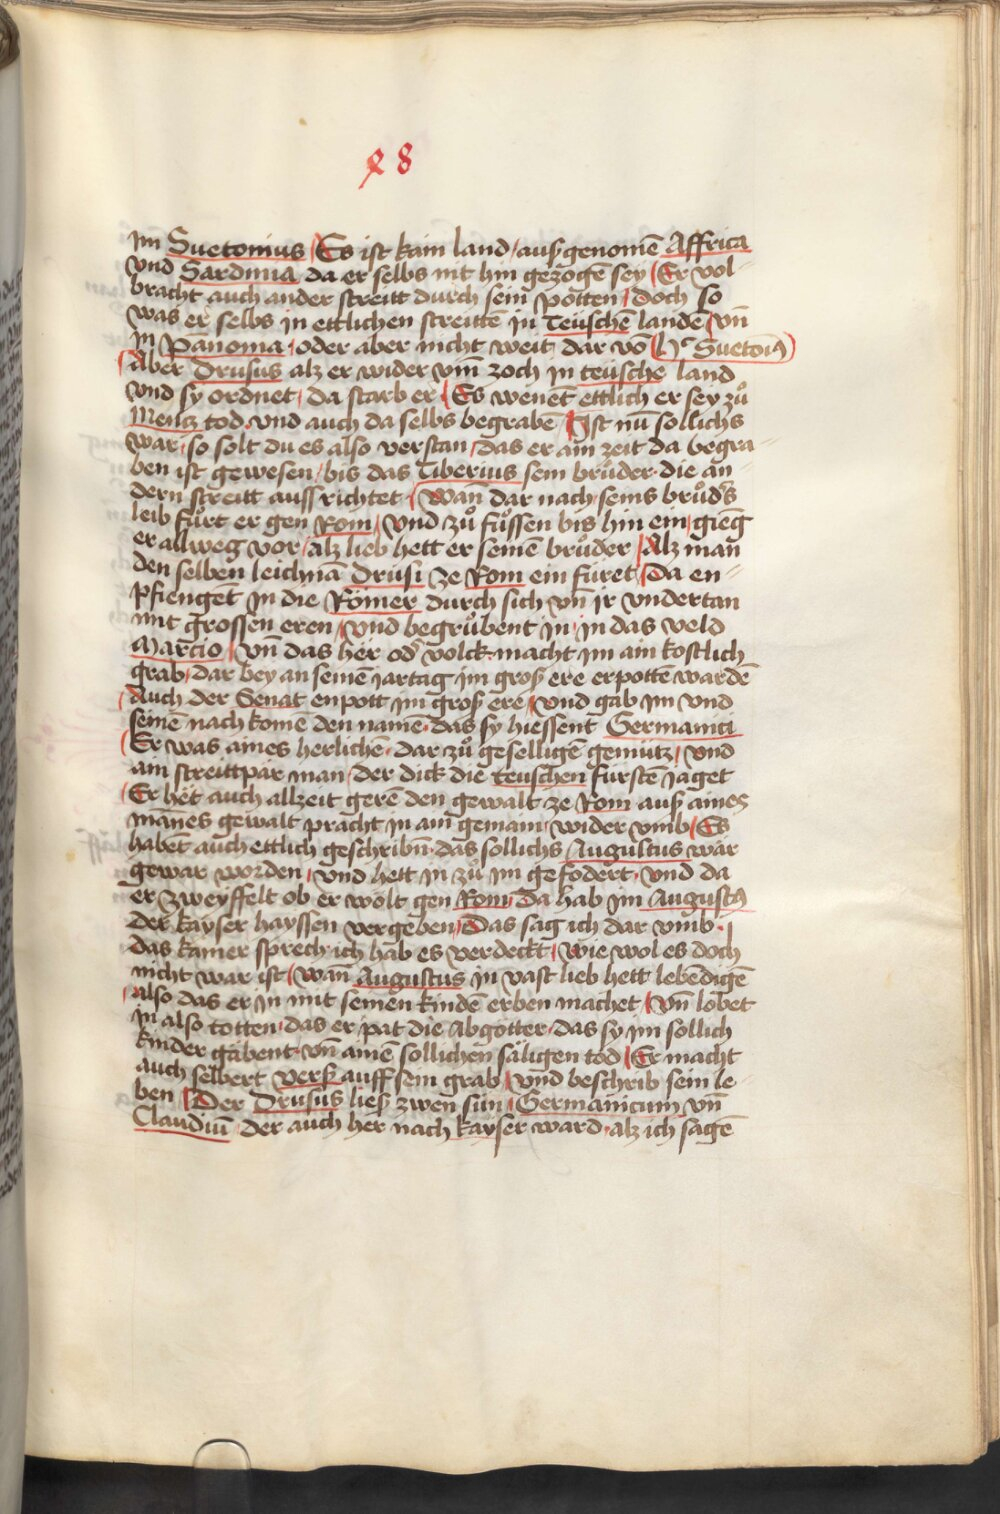 48
im Suetonius / Es ist kain land / außgenomē Affrica
vnd Sardinia da er selbs nit hin gezogē sey / Er vol-
bracht auch ander streitt durch sein potten / doch so
was er selbs in ettlichen streittē in Teüschē landē / vn̄
in Pānonia / oder aber nicht weit dar vō / Hͦ Suetoīꝰ
/ Aber Drusus alz er wider vm̄ zoch in teüsche land
vnd sy ordnet / da starb er / Es wenēt ettlich er sey zů
Mentz tod vnd auch da selbs begrabē / Ist nū sollichs
war / so solt du es also verstan / das er ain zeit da begra-
ben ist gewesen / bis das Tiberius sein brůder die an
dern streitt auss richtet / Wan̄ dar nach seins brůdˢs
leib fůrt er gen Rom / vnd zů fůssen bis hin ein / gieng
er allweg vor / alz lieb hett er seinē brůder / Alz man
den selben leichnā Drusi ze Rom ein füret / Da en-
pfienget in die Römer durch sich vn̄ ir vndertan
mit grossen eren / vnd begrůbent in / in das veld
Marcio / vn̄ das her odˢ volck macht im ain kostlich
grab / dar bey an seinē iartag im groß ere erpotten wardē
/ Auch der Senat enpott im groß ere / vnd gab im vnd
seinē nach komē den namē das sy hiessent Germanici
/ Er was aines herlichē dar zů geselligē gemütz / vnd
ain streittpar man / der dick die teuschen fürstē iaget
/ Er het auch allzeit gerē den gewalt ze Rom auß aines
man̄es gewalt pracht in ain gemain / wider vmb / Es
habēt auch ettlich geschribn̄ das sollichs Augustus wär
gewar worden / vnd hett in zů im gefodert / vnd da
er zweyffelt ob er wölt gen Rom / Da hab im Augustꝰ
der kayser hayssen vergeben / Das sag ich dar vmb /
das kainer sprech ich hab es verdeckt / wie wol es doch
nicht war ist / wan̄ Augustus in vast lieb hett lebēdigē
/ also das er in mit seinen kindē erben machet / vn̄ lobet
in also totten / das er pat die abgötter das sy im sollich
kinder gäbent vn̄ ainē sollichen säligen tod / Er macht
auch selbert verß auff sein grab / vnd beschrib sein le-
ben / Der Drusus ließ zwen sün / Germanicum vn̄
Claudiū / der auch her nach kayser ward / alz ich sagē